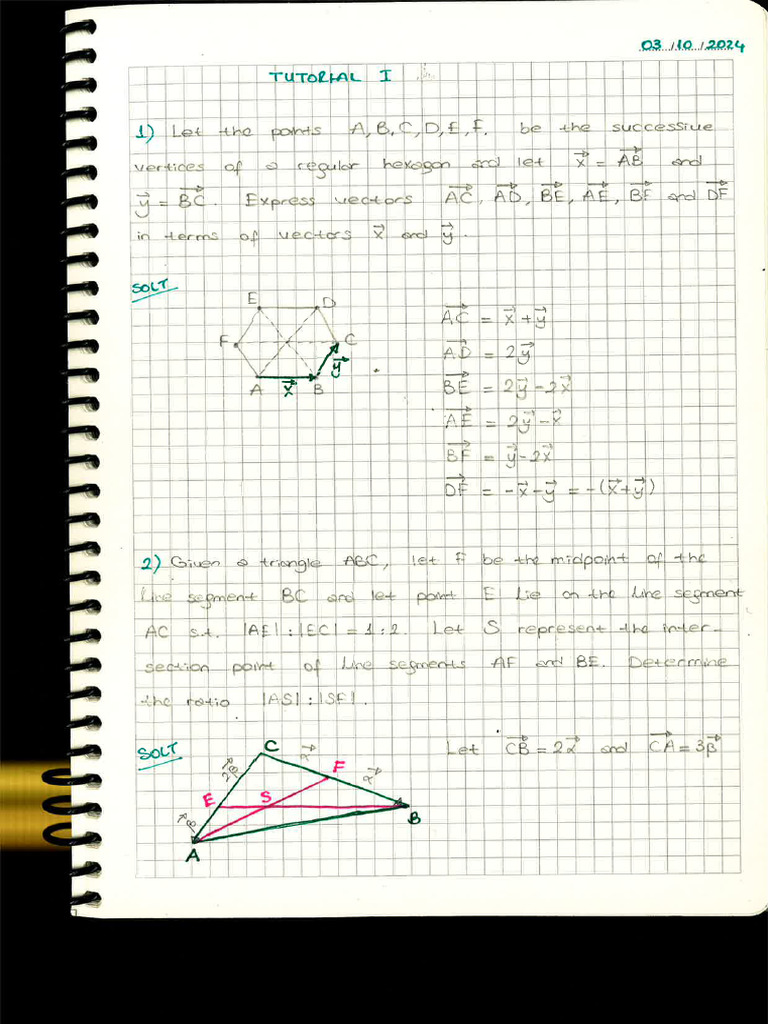 03/10/2024
TUTORIAL I
1) Let the points A, B, C, D, E, F. be the successive
vertices of a regular hexagon and let x⃗ = AB⃗ and
y⃗ = BC⃗. Express vectors AC⃗, AD⃗, BE⃗, AE⃗, BF⃗ and DF⃗
in terms of vectors x⃗ and y⃗.
SOLT
E D
F C
A x⃗ B y⃗
AC⃗ = x⃗ + y⃗
AD⃗ = 2y⃗
BE⃗ = 2y⃗ - 2x⃗
AE⃗ = 2y⃗ - x⃗
BF⃗ = y⃗ - 2x⃗
DF⃗ = -x⃗ - y⃗ = -(x⃗ + y⃗)
2) Given a triangle ABC, let F be the midpoint of the
line segment BC and let point E lie on the line segment
AC s.t. |AE| : |EC| = 1 : 2. Let S represent the inter-
section point of line segments AF and BE. Determine
the ratio |AS| : |SF|.
SOLT
Let CB⃗ = 2α⃗ and CA⃗ = 3β⃗
C α⃗
2β⃗ F α⃗
E S
β⃗ B
A